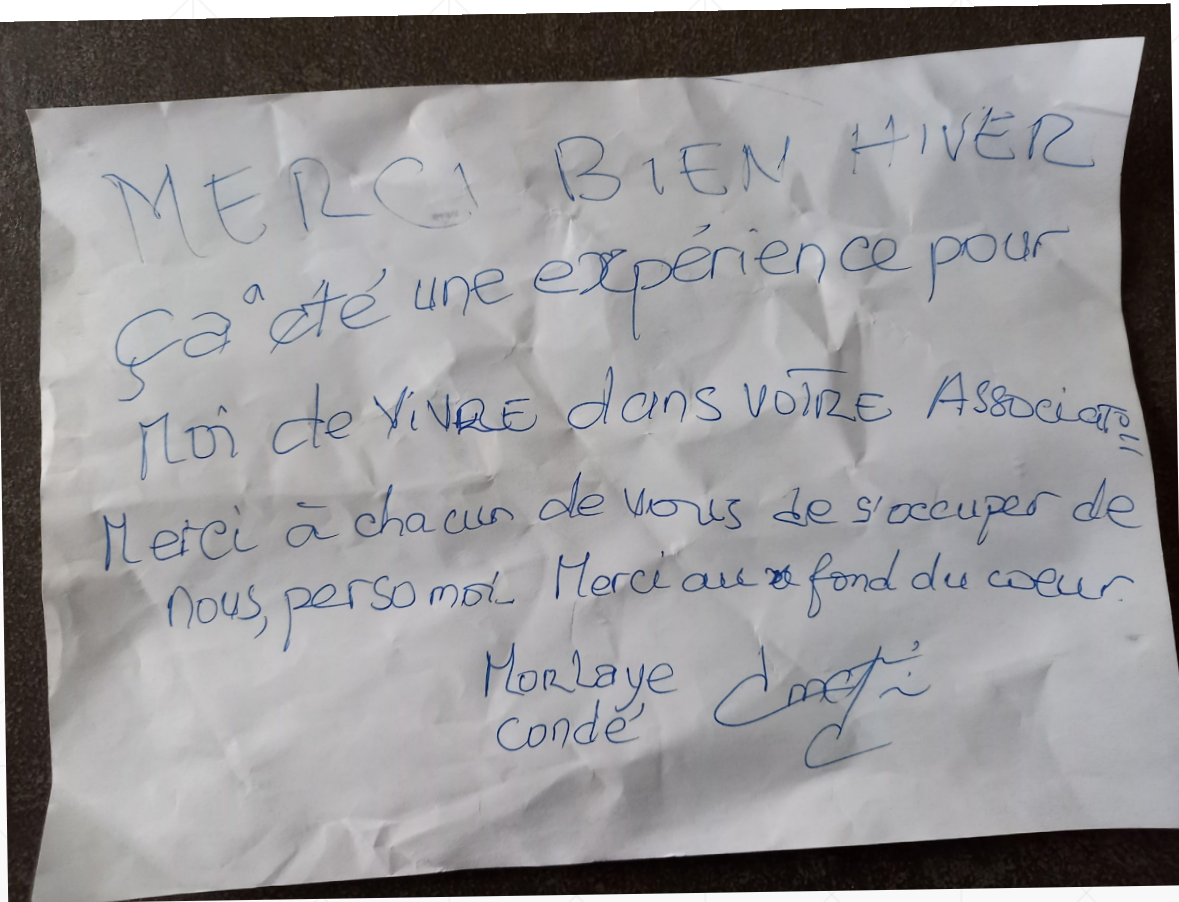 MERCI BIEN HIVER
ça a été une expérience pour
Moi de VIVRE dans VOTRE Associat°
Merci à chacun de vous de s'occuper de
nous, perso moi. Merci au fond du coeur.
Morlaye
Condé